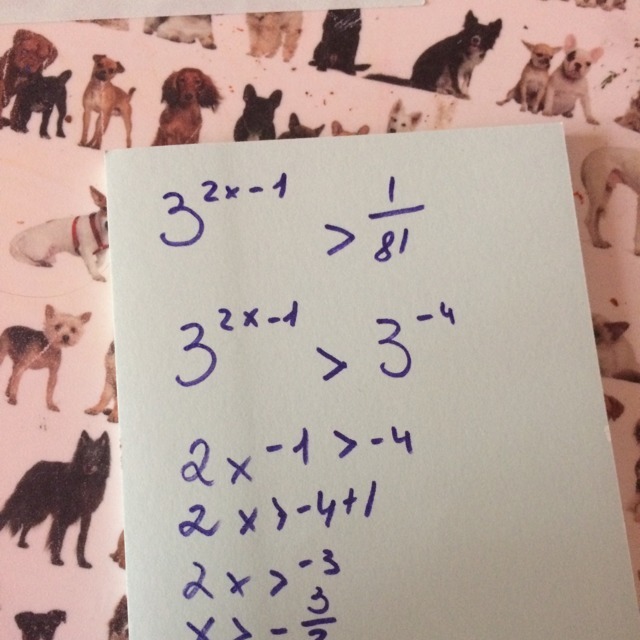 3^{2x-1} > 1/81
3^{2x-1} > 3^{-4}
2x-1>-4
2x>-4+1
2x>-3
x>-3/2